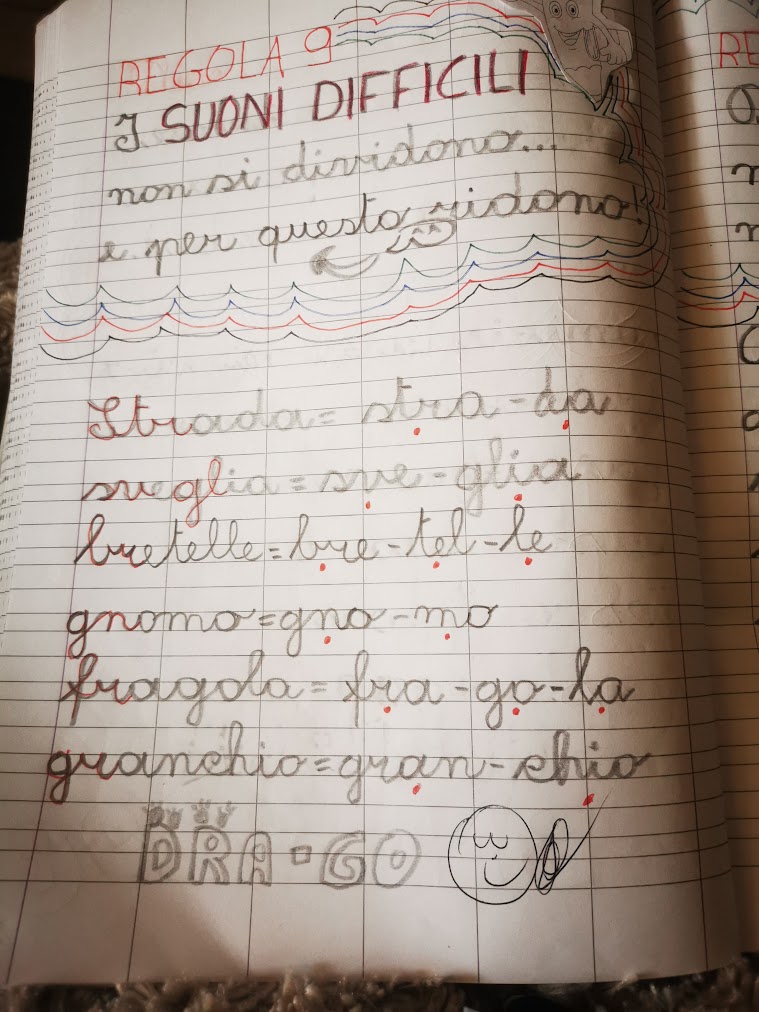 REGOLA 9
I SUONI DIFFICILI
non si dividono...
e per questo ridono!
Strada = stra - da
sveglia = sve - glia
bretelle = bre - tel - le
gnomo = gno - mo
fragola = fra - go - la
granchio = gran - chio
DRA - GO